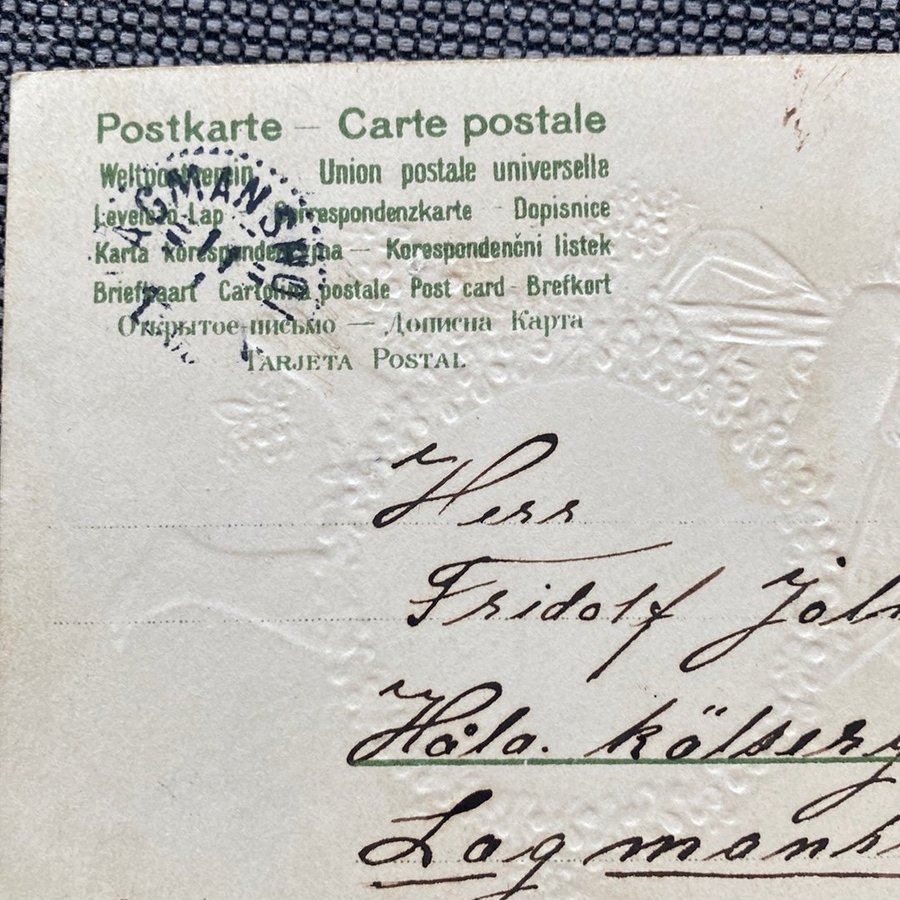 Postkarte — Carte postale
Weltpostverein Union postale universelle
Levelezö-Lap Correspondenzkarte Dopisnice
Karta korespondencyjna — Korespondenčni listek
Briefkaart Cartolina postale Post card - Brefkort
Открытое письмо — Дописна Карта
TARJETA POSTAL
AGMANSHO
Herr
Fridolf Joh
Håla.
Lagmans